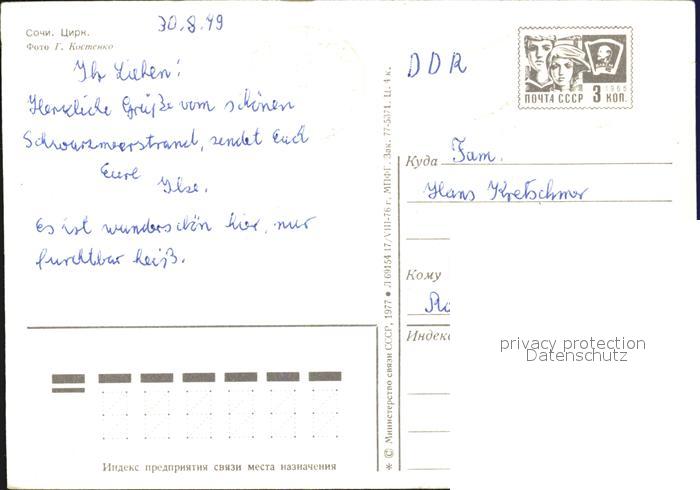 Сочи. Цирк.
Фото Г. Костенко
30.8.79
Ihr Lieben!
Herzliche Grüße vom schönen
Schwarzmeerstrand, sendet Euch
Eure
Ilse.
Es ist wunderschön hier, nur
furchtbar heiß.
Индекс предприятия связи места назначения
* © Министерство связи СССР, 1977 ● Л 69154 17/VIII-76 г. МПФГ. Зак. 77-5371. Ц. 4 к.
DDR
ПОЧТА СССР 3 КОП.
1966
Куда Fam.
Hans Kretschmer
Кому
Индекс
privacy protection
Datenschutz